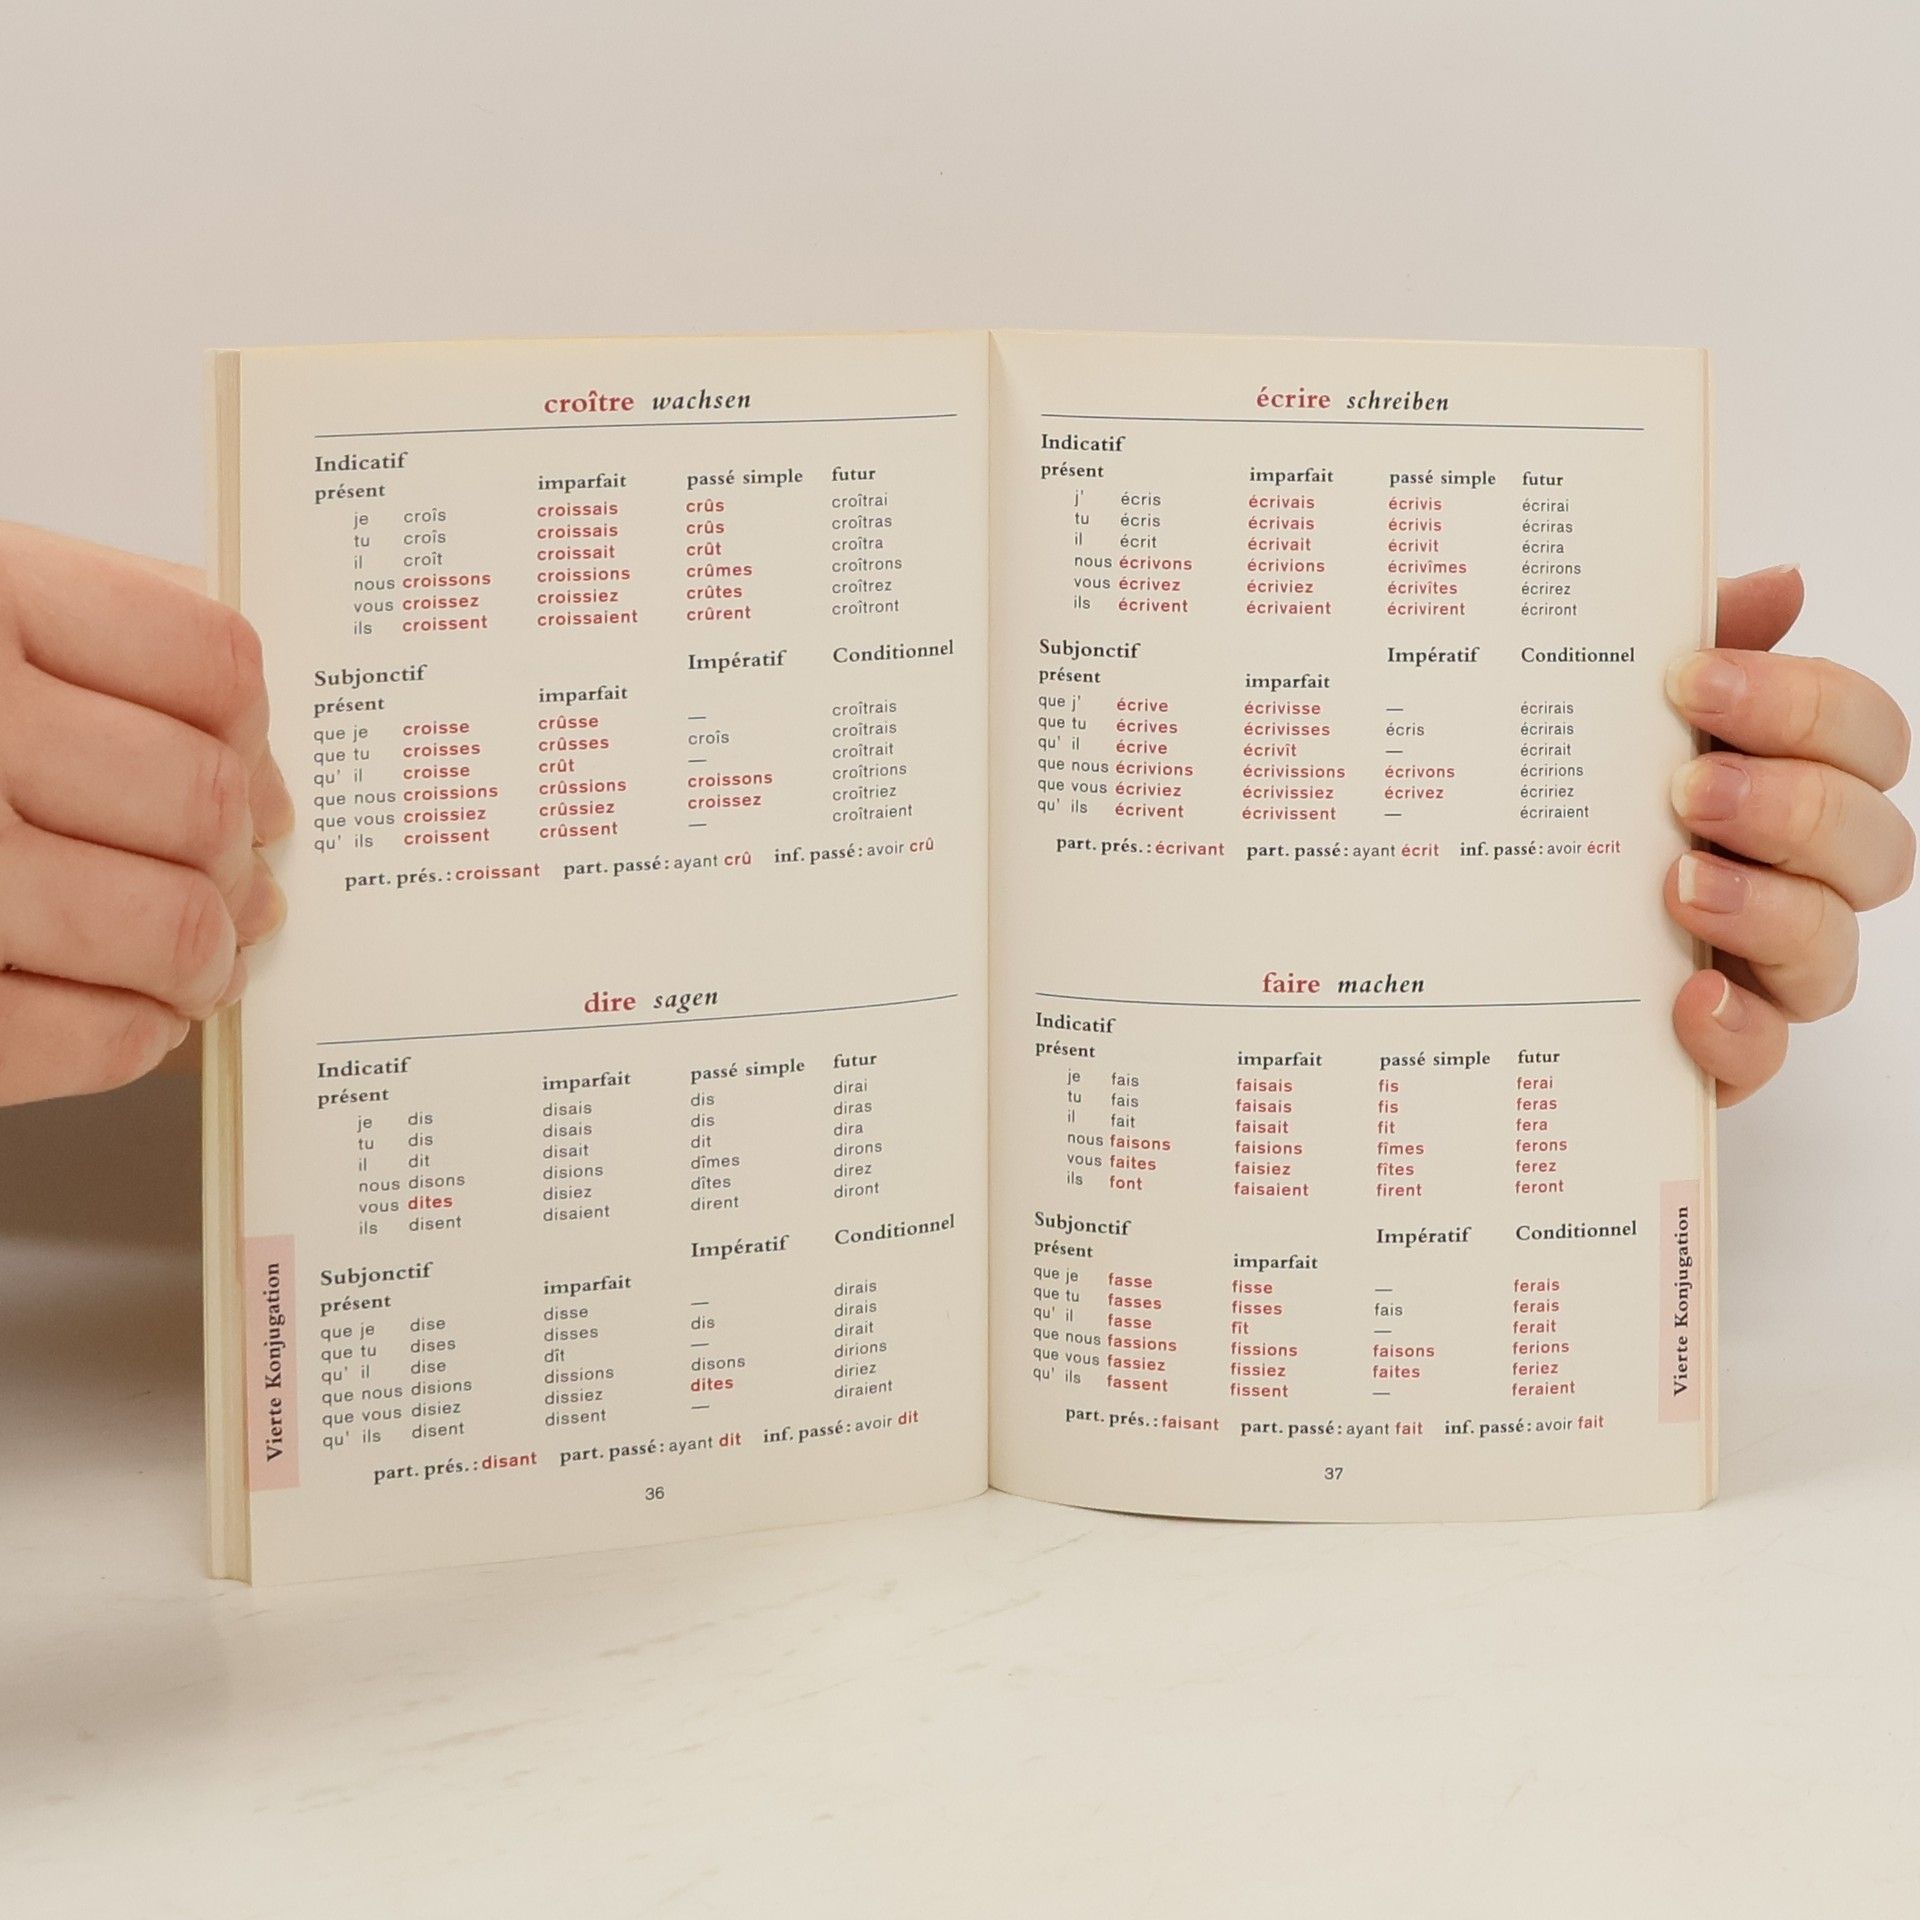 croître wachsen
Indicatif
présent imparfait passé simple futur
je croîs croissais crûs croîtrai
tu croîs croissais crûs croîtras
il croît croissait crût croîtra
nous croissons croissions crûmes croîtrons
vous croissez croissiez crûtes croîtrez
ils croissent croissaient crûrent croîtront
Subjonctif Impératif Conditionnel
présent imparfait
que je croisse crûsse — croîtrais
que tu croisses crûsses croîs croîtrais
qu' il croisse crût — croîtrait
que nous croissions crûssions croissons croîtrions
que vous croissiez crûssiez croissez croîtriez
qu' ils croissent crûssent — croîtraient
part. prés.: croissant part. passé: ayant crû inf. passé: avoir crû
dire sagen
Indicatif
présent imparfait passé simple futur
je dis disais dis dirai
tu dis disais dis diras
il dit disait dit dira
nous disons disions dîmes dirons
vous dites disiez dîtes direz
ils disent disaient dirent diront
Subjonctif Impératif Conditionnel
présent imparfait
que je dise disse — dirais
que tu dises disses dis dirais
qu' il dise dît — dirait
que nous disions dissions disons dirions
que vous disiez dissiez dites diriez
qu' ils disent dissent — diraient
part. prés.: disant part. passé: ayant dit inf. passé: avoir dit
Vierte Konjugation
36
écrire schreiben
Indicatif
présent imparfait passé simple futur
j' écris écrivais écrivis écrirai
tu écris écrivais écrivis écriras
il écrit écrivait écrivit écrira
nous écrivons écrivions écrivîmes écrirons
vous écrivez écriviez écrivîtes écrirez
ils écrivent écrivaient écrivirent écriront
Subjonctif Impératif Conditionnel
présent imparfait
que j' écrive écrivisse — écrirais
que tu écrives écrivisses écris écrirais
qu' il écrive écrivît — écrirait
que nous écrivions écrivissions écrivons écririons
que vous écriviez écrivissiez écrivez écririez
qu' ils écrivent écrivissent — écriraient
part. prés.: écrivant part. passé: ayant écrit inf. passé: avoir écrit
faire machen
Indicatif
présent imparfait passé simple futur
je fais faisais fis ferai
tu fais faisais fis feras
il fait faisait fit fera
nous faisons faisions fîmes ferons
vous faites faisiez fîtes ferez
ils font faisaient firent feront
Subjonctif Impératif Conditionnel
présent imparfait
que je fasse fisse — ferais
que tu fasses fisses fais ferais
qu' il fasse fît — ferait
que nous fassions fissions faisons ferions
que vous fassiez fissiez faites feriez
qu' ils fassent fissent — feraient
part. prés.: faisant part. passé: ayant fait inf. passé: avoir fait
Vierte Konjugation
37